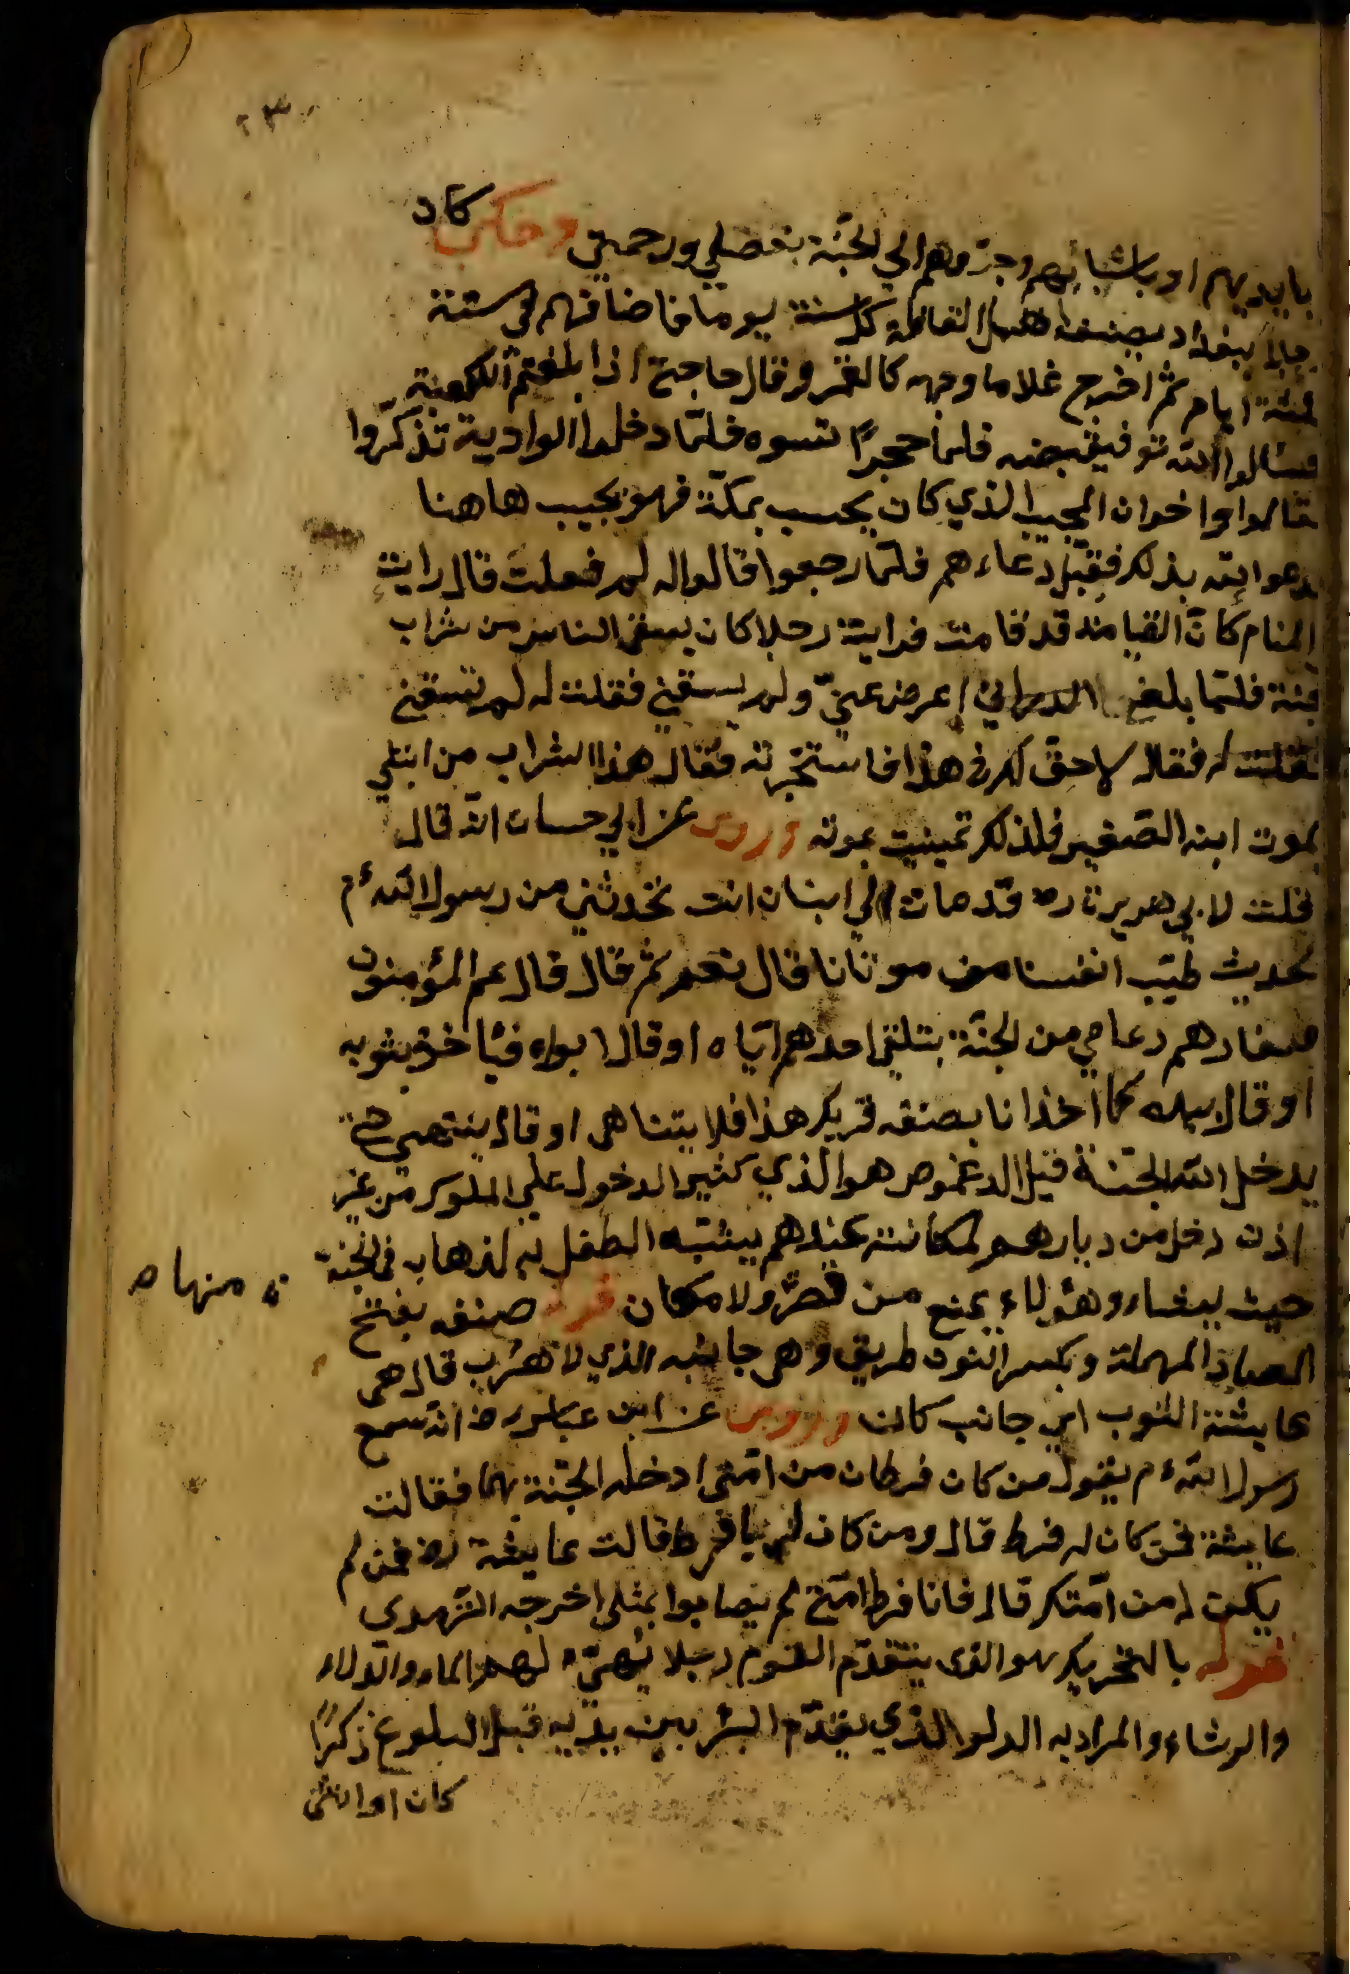 ٢٣
بايديهم او باشبابهم وجرّوهم الى الجنّة بفضلي ورحمتي وحكى كان
ببغداد اهل القافلة كل سنة يوما فاضافهم في سنة
ايام ثم اخرج غلاما وجهه كالقمر وقال حاجتي اذا بلغتم الكعبة
فسئلوا الله تو فلما حجرًا نسوه فلمّا دخلوا الوادية تذكّروا
فقالوا اخوان المجيب الذي كان يجيب بمكّة فهو يجيب هاهنا
ودعوا الله بذلك فقبل دعاءهم فلمّا رجعوا قالوا له لم فعلت قال رايت
المنام كانّ القيامة قد قامت فرايت رجلا كان يسقي الناس من شراب
الجنة فلمّا بلغ اعرض عنيّ ولم يسقني فقلت له لم تسقني
فقلت له فقال لا حقّ لك في هذا فاستخبرته فقال هذا الشراب من ابتلي
بموت ابنه الصّغير فلذلك تمنيت بموته وروى عن ابي حسان انّه قال
قلت لابي هريرة رض قد مات لي ابنان انت تحدثني من رسول الله ءم
بحديث طيّب انفسنا من موتانا قال نعم ثم قال قال عم المؤمنون
صغارهم دعاميص من الجنّة يتلقى احدهم ايّاه او قال ابواه فياخذ بثوبه
او قال بيده كما اخذ انا بصنفة ثوبك هذا فلا يتناهى او قال ينتهي حتى
يدخل الله الجنّة قيل الدعموص هو الذي كثير الدخول على الملوك من غير
اذن دخل من ديارهم لمكانته عندهم يشبّه الطفل به لذهابه في الجنة
حيث يشاء وهؤلاء يمنع من قصر ولا مكان قوله صنفة بفتح
ن منها ه
الصاد المهملة وبكسر النون طريق وهي جانبه الذي لا هدب قال هي
حاشية الثوب اي جانب كان وروى عن ابن عباس رض انّه سمع
رسول الله ءم يقول من كان فرطان من امّتي ادخله الجنّة بهما فقالت
عايشة فمن كان له فرط قال ومن كان له فرط قالت عايشة رض فمن لم
يكن له من امّتك قال فانا فرط امّتي لم يصابوا بمثلي اخرجه الترمدى
قوله بالتحريك هو الذي يتقدّم القوم رجلا يهيّء لهم الماء والدلاء
والرشاء والمراد به الولد الذي يقدّم البشر بين يديه قبل البلوغ ذكرًا
كان او انثى